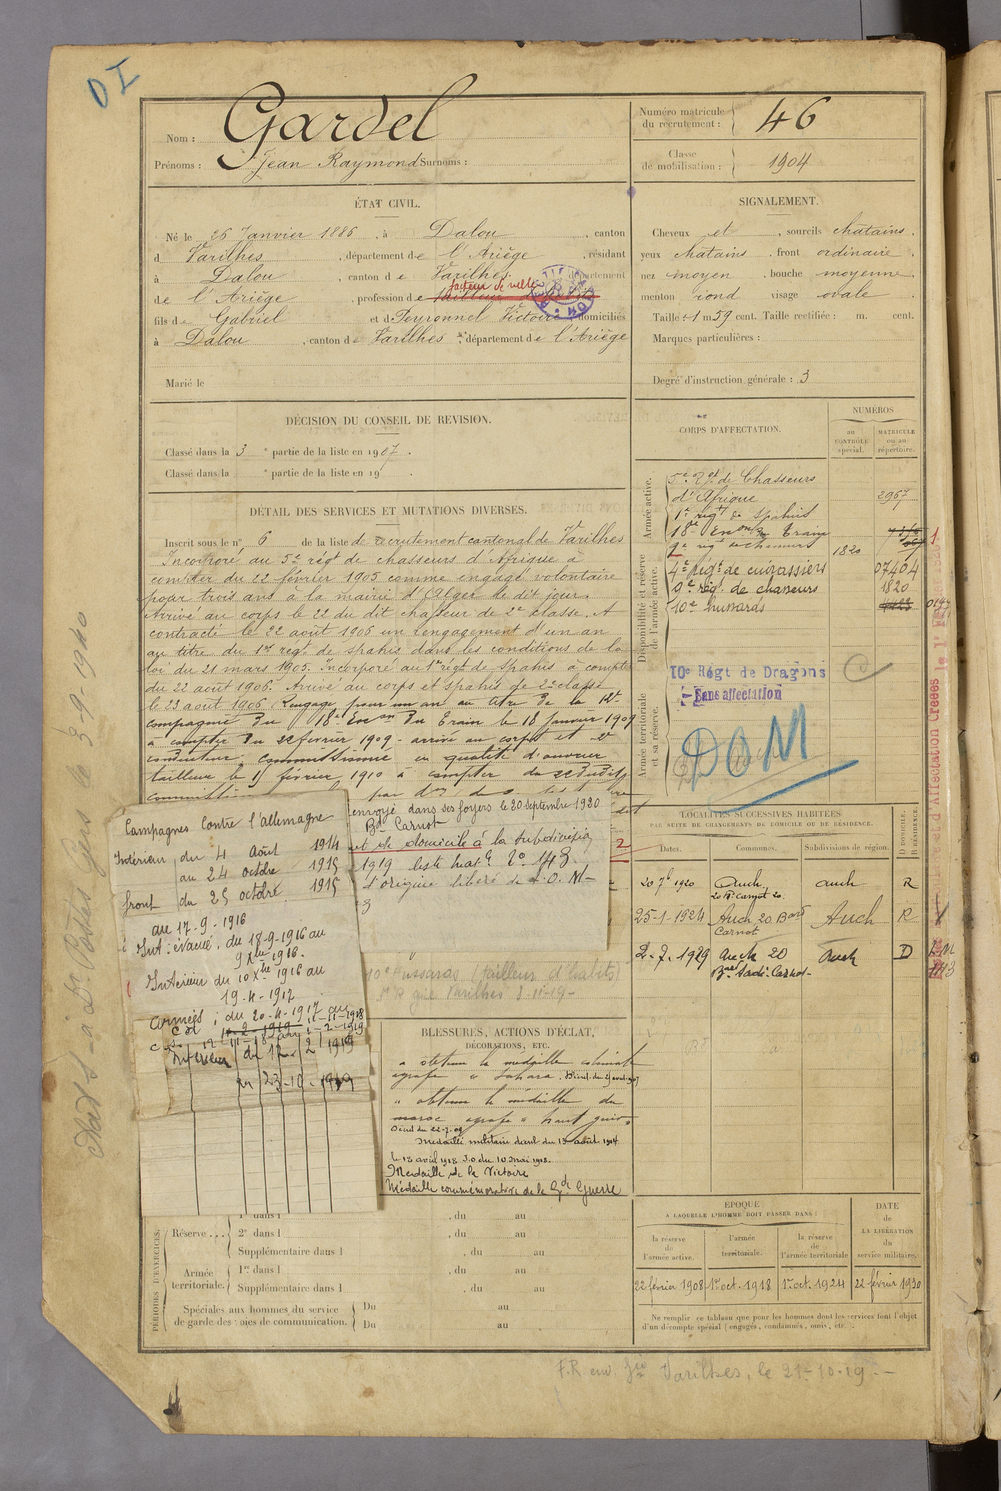 D I
Nom : Gardel
Prénoms : Jean Raymond Surnoms :
Numéro matricule
du recrutement : 46
Classe
de mobilisation : 1904
ÉTAT CIVIL.
Né le 26 Janvier 1886, à Dalou, canton
d Varilhes, département de l'Ariège, résidant
à Dalou, canton de Varilhes, département
de l'Ariège, profession de
facteur de ville
fils de Gabriel et de Peyronnel Victoire domiciliés
à Dalou, canton de Varilhes, département de l'Ariège
Marié le
SIGNALEMENT.
Cheveux et , sourcils chatains.
yeux chatains, front ordinaire,
nez moyen, bouche moyenne,
menton rond visage ovale.
Taille : 1 m 59 cent. Taille rectifiée : m. cent.
Marques particulières :
Degré d'instruction générale : 3
DÉCISION DU CONSEIL DE REVISION.
Classé dans la 3 e partie de la liste en 1907.
Classé dans la e partie de la liste en 19 .
CORPS D'AFFECTATION.
NUMÉROS
au
CONTRÔLE
spécial.
MATRICULE
ou au
répertoire.
Armée active.
5e Rgt de Chasseurs
d'Afrique 2967
1er régt de spahis
18e Escon du Train
2e régt de chasseurs 1820
Disponibilité et réserve
de l'armée active.
4e Régt de cuirassiers 07464
9e régt de chasseurs 1820
10e hussards
Armée territoriale
et sa réserve.
10e Régt de Dragons
Sans affectation
DOM
DÉTAIL DES SERVICES ET MUTATIONS DIVERSES.
Inscrit sous le n° 6 de la liste de recrutement cantonal de Varilhes
Incorporé au 5e régt de chasseurs d'Afrique à
compter du 22 février 1905 comme engagé volontaire
pour trois ans à la mairie d'Alger le dit jour.
Arrivé au corps le 22 du dit chasseur de 2e classe. A
contracté le 22 août 1906 un rengagement d'un an
au titre du 1er régt de spahis dans les conditions de la
loi du 21 mars 1905. Incorporé au 1er régt de spahis à compter
du 22 août 1906. Arrivé au corps et spahis de 2e classe
le 23 août 1906. Rengagé pour un an au titre de la 12e
compagnie du 18e Escon du Train le 18 janvier 1909
à compter du 22 février 1909 - arrivé au corps et 2e
conducteur, commissionné en qualité d'ouvrier
tailleur le 15 février 1910 à compter du 22 dudit
Campagnes contre l'allemagne
Intérieur du 4 Août 1914
au 24 octobre 1915
front du 25 octobre 1915
au 17-9-1916
Int : évacué, du 18-9-1916 au
9 Xbre 1916.
Intérieur du 10 Xbre 1916 au
19-4-1917
Armées : du 20-4-1917 au
Intérieur du 2 1919
au 23-10-1919
envoyé dans ses foyers le 20 septembre 1920
Bd Carnot
et de domicile à la subdivision
d'origine libéré de
10e Hussards (tailleur d'habits)
BLESSURES, ACTIONS D'ÉCLAT,
DÉCORATIONS, ETC.
a obtenu la médaille coloniale
agrafe " Sahara.
a obtenu la médaille du
maroc agrafe " haut guir "
Décret du 22-7-09
Médaille militaire décret du 13 août 1914
Médaille de la Victoire
Médaille commémorative de la Gde Guerre
LOCALITÉS SUCCESSIVES HABITÉES
PAR SUITE DE CHANGEMENTS DE DOMICILE OU DE RÉSIDENCE.
Dates. Communes. Subdivisions de région. D DOMICILE. R RÉSIDENCE.
20 7bre 1920 Auch auch R
20 Bd Carnot 20
25-1-1924 Auch 20 Bard Auch R
Carnot
2-7-1929 auch 20 auch D
Bard Sadi-Carnot
PÉRIODES D'EXERCICES.
Réserve ....
1re dans l , du au
2e dans l , du au
Supplémentaire dans l , du au
Armée
territoriale.
1re dans l , du au
Supplémentaire dans l , du au
Spéciales aux hommes du service
de garde des voies de communication.
Du au
Du au
ÉPOQUE
À LAQUELLE L'HOMME DOIT PASSER DANS :
DATE
DE
LA LIBÉRATION
du
service militaire.
la réserve
de
l'armée active.
l'armée
territoriale.
la réserve
de
l'armée territoriale
22 février 1908 1er oct. 1918 1er oct. 1924 22 février 1930
Ne remplir ce tableau que pour les hommes dont les services font l'objet
d'un décompte spécial (engagés, condamnés, omis, etc.).
F.R. env. gie Varilhes, le 21-10-19.-